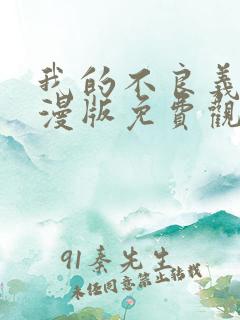 我的不良義
漫版免費觀
91秦先生
未经同意禁止转载